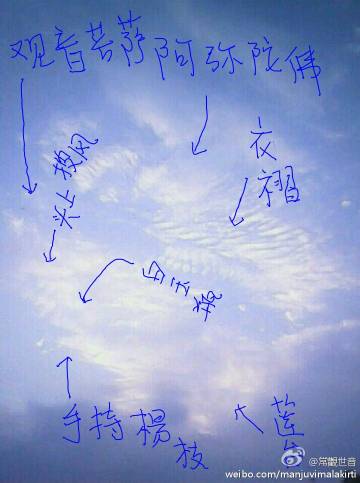 观音菩萨 阿弥陀佛
头上披风
衣褶
白玉
手持楊枝
莲
@常觀世音
weibo.com/manjuvimalakirti